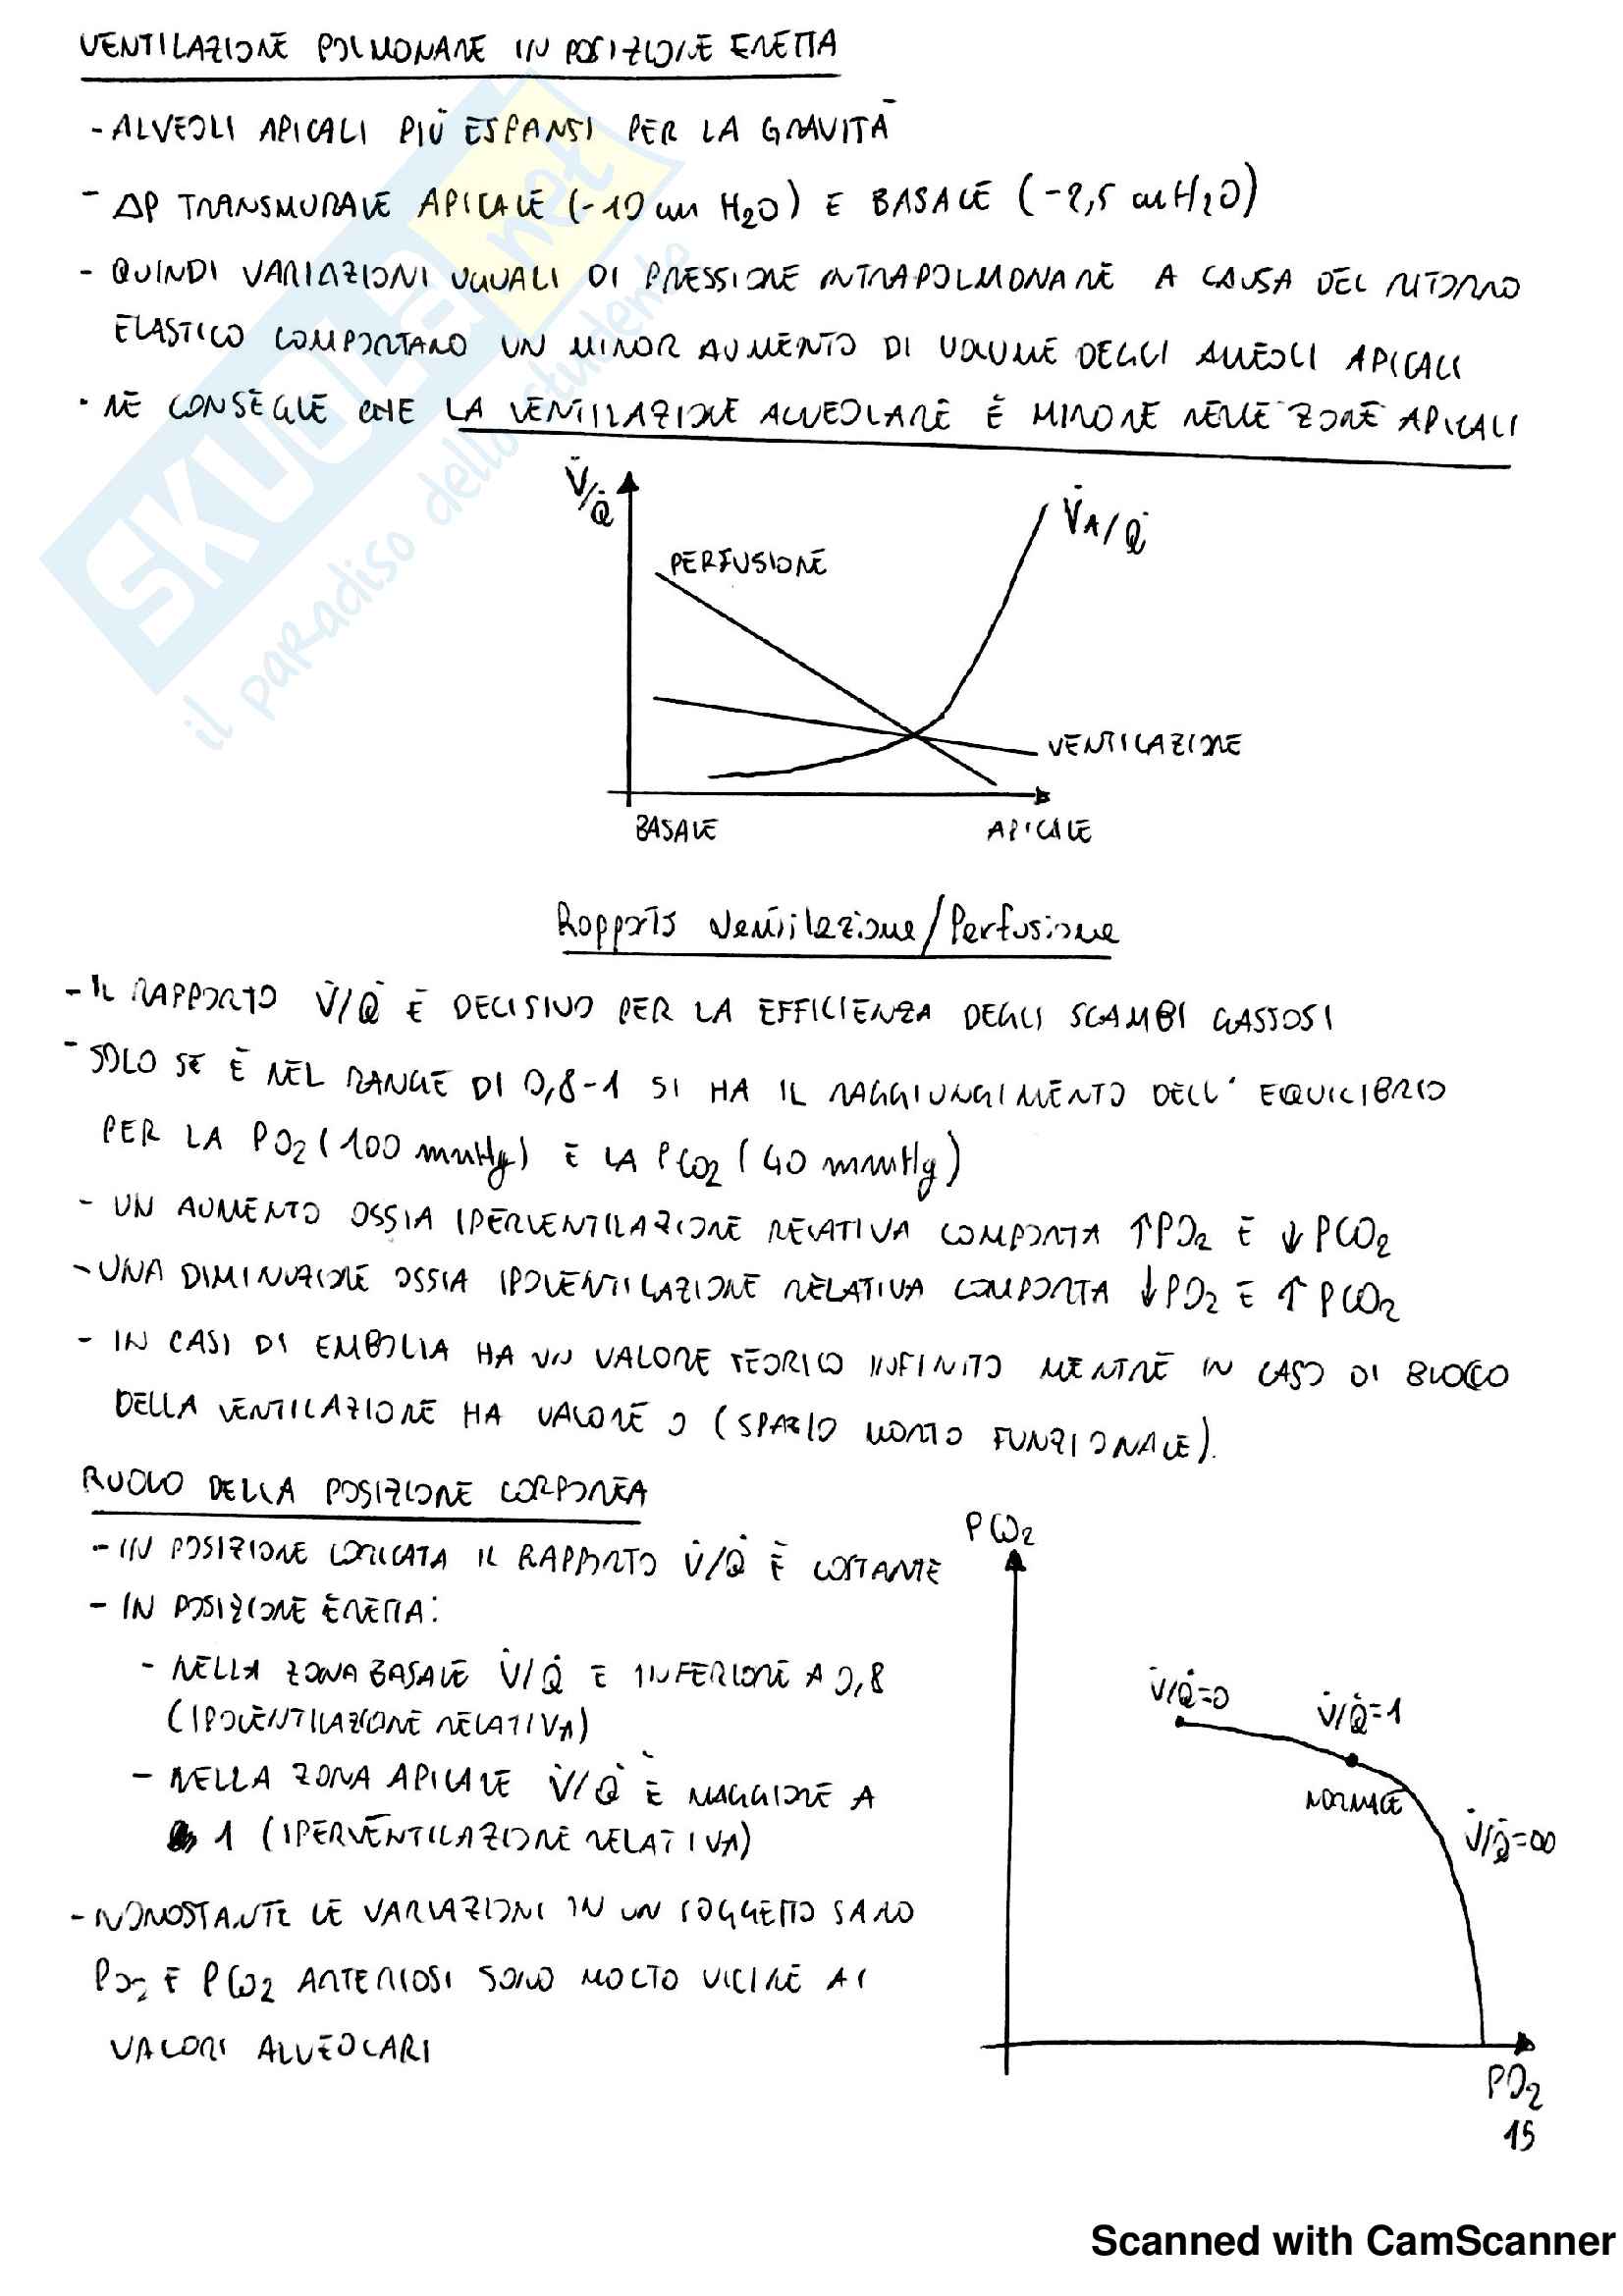 VENTILAZIONE POLMONARE IN POSIZIONE ERETTA
- ALVEOLI APICALI PIÙ ESPANSI PER LA GRAVITÀ
- ΔP TRANSMURALE APICALE (-10 cm H2O) E BASALE (-2,5 cm H2O)
- QUINDI VARIAZIONI UGUALI DI PRESSIONE INTRAPOLMONARE A CAUSA DEL RITORNO
ELASTICO COMPORTANO UN MINOR AUMENTO DI VOLUME DEGLI ALVEOLI APICALI
• NE CONSEGUE CHE LA VENTILAZIONE ALVEOLARE È MINORE NELLE ZONE APICALI
V̇/Q̇
V̇A/Q̇
PERFUSIONE
VENTILAZIONE
BASALE APICALE
Rapporto Ventilazione/Perfusione
- IL RAPPORTO V̇/Q̇ È DECISIVO PER LA EFFICIENZA DEGLI SCAMBI GASSOSI
- SOLO SE È NEL RANGE DI 0,8-1 SI HA IL RAGGIUNGIMENTO DELL' EQUILIBRIO
PER LA PO2 (100 mmHg) E LA PCO2 (40 mmHg)
- UN AUMENTO OSSIA IPERVENTILAZIONE RELATIVA COMPORTA ↑PO2 E ↓PCO2
- UNA DIMINUZIONE OSSIA IPOVENTILAZIONE RELATIVA COMPORTA ↓PO2 E ↑PCO2
- IN CASI DI EMBOLIA HA UN VALORE TEORICO INFINITO MENTRE IN CASO DI BLOCCO
DELLA VENTILAZIONE HA VALORE 0 (SPAZIO MORTO FUNZIONALE).
RUOLO DELLA POSIZIONE CORPOREA
- IN POSIZIONE CORICATA IL RAPPORTO V̇/Q̇ È COSTANTE
- IN POSIZIONE ERETTA:
- NELLA ZONA BASALE V̇/Q̇ E INFERIORE A 0,8
(IPOVENTILAZIONE RELATIVA)
- NELLA ZONA APICALE V̇/Q̇ È MAGGIORE A
1 (IPERVENTILAZIONE RELATIVA)
- NONOSTANTE LE VARIAZIONI IN UN SOGGETTO SANO
PO2 E PCO2 ARTERIOSI SONO MOLTO VICINE AI
VALORI ALVEOLARI
PCO2
V̇/Q̇=0
V̇/Q̇=1
NORMALE
V̇/Q̇=∞
PO2
15
SKUOLA.net
il paradiso dello studente
Scanned with CamScanner